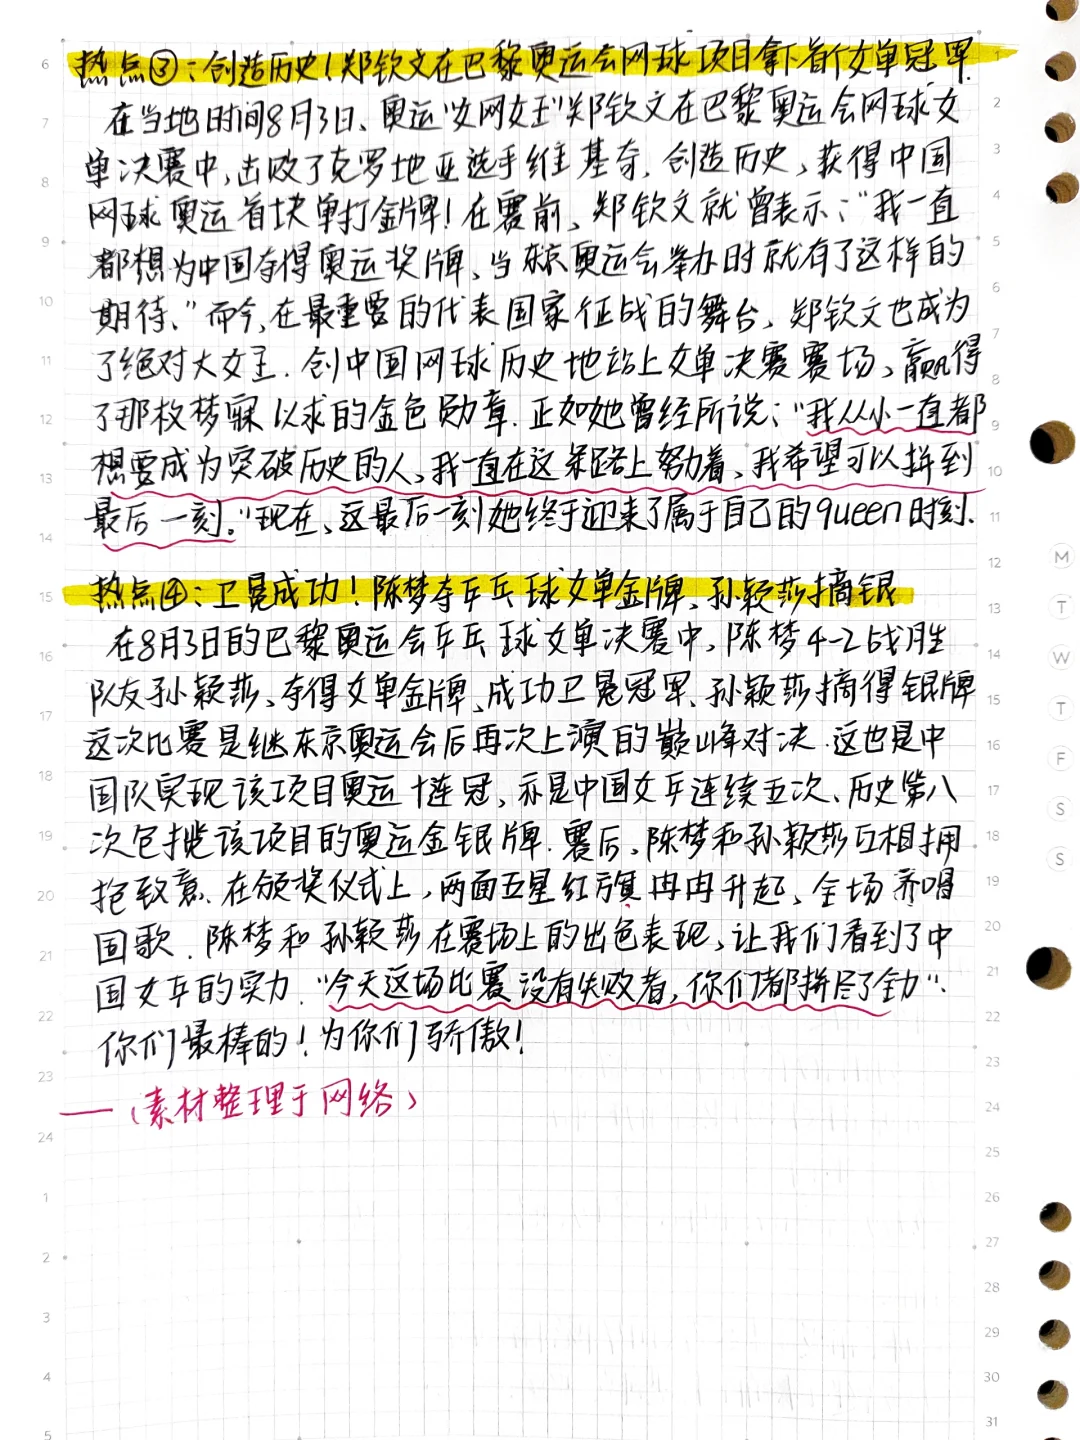 热点③：创造历史！郑钦文在巴黎奥运会网球项目拿下首个女单冠军.
在当地时间8月3日、奥运"女网女王"郑钦文在巴黎奥运会网球女
单决赛中，击败了克罗地亚选手维基奇，创造历史，获得中国
网球奥运首块单打金牌！在赛前，郑钦文就曾表示："我一直
都想为中国夺得奥运奖牌、当东京奥运会举办时就有了这样的
期待、"而今，在最重要的代表国家征战的舞台，郑钦文也成为
了绝对大女主．创中国网球历史地站上女单决赛赛场，赢得
了那枚梦寐以求的金色勋章．正如她曾经所说："我从小一直都
想要成为突破历史的人，我一直在这条路上努力着，我希望可以拼到
最后一刻。"现在，这最后一刻她终于迎来了属于自己的queen时刻．
热点④：卫冕成功！陈梦夺乒乓球女单金牌、孙颖莎摘银
在8月3日的巴黎奥运会乒乓球女单决赛中，陈梦4-2战胜
队友孙颖莎、夺得女单金牌、成功卫冕冠军、孙颖莎摘得银牌
这次比赛是继东京奥运会后再次上演的巅峰对决．这也是中
国队实现该项目奥运十连冠，亦是中国女乒连续五次、历史第八
次包揽该项目的奥运金银牌．赛后，陈梦和孙颖莎互相拥
抱致意．在颁奖仪式上，两面五星红旗冉冉升起，全场齐唱
国歌．陈梦和孙颖莎在赛场上的出色表现，让我们看到了中
国女乒的实力．"今天这场比赛没有失败者，你们都拼尽了全力"．
你们最棒的！为你们骄傲！
——（素材整理于网络）
6
7
8
9
10
11
12
13
14
15
16
17
18
19
20
21
22
23
24
1
2
3
4
5
1
2
3
4
5
6
7
8
9
10
11
12
13
14
15
16
17
18
19
20
21
22
23
24
25
26
27
28
29
30
31
M
T
W
T
F
S
S